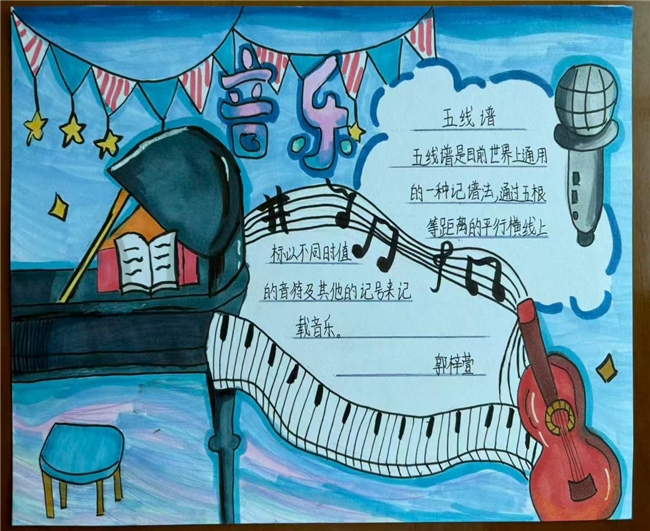 音乐
五线谱
五线谱是目前世界上通用
的一种记谱法,通过五根
等距离的平行横线上
标以不同时值
的音符及其他的记号来记
载音乐。
郭梓萱